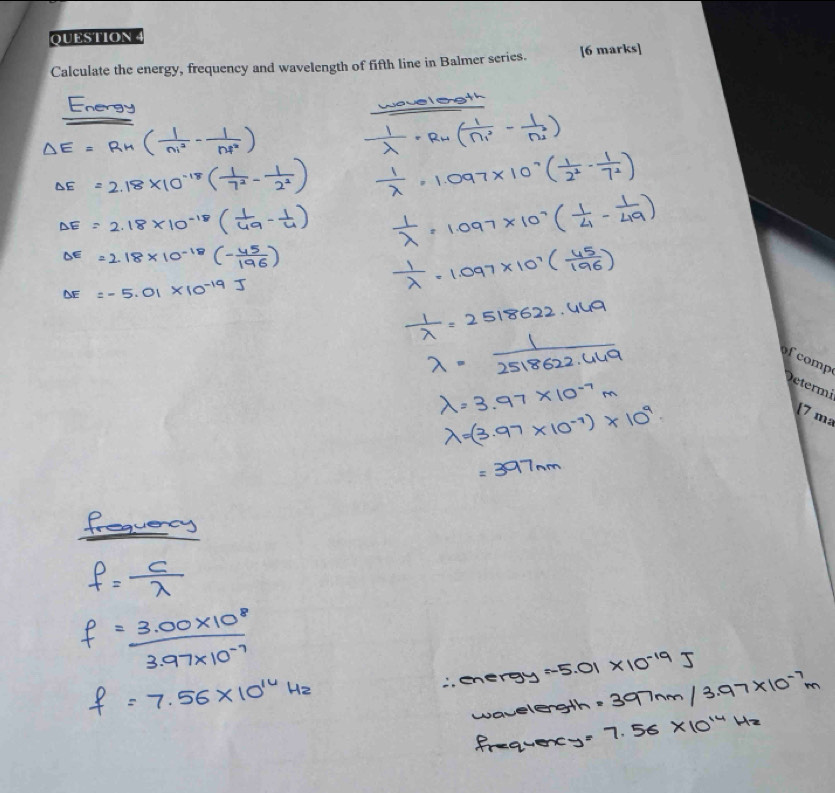 QUESTION 4
Calculate the energy, frequency and wavelength of fifth line in Balmer series. [6 marks]
Energy
ΔE = RH (1/ni² - 1/nf²)
ΔE = 2.18 × 10⁻¹⁸ (1/7² - 1/2²)
ΔE = 2.18 × 10⁻¹⁸ (1/49 - 1/4)
ΔE = 2.18 × 10⁻¹⁸ (-45/196)
ΔE = -5.01 × 10⁻¹⁹ J
wavelength
1/λ = RH (1/n₁² - 1/n₂²)
1/λ = 1.097 × 10⁷ (1/2² - 1/7²)
1/λ = 1.097 × 10⁷ (1/4 - 1/49)
1/λ = 1.097 × 10⁷ (45/196)
1/λ = 2518622.449
λ = 1/2518622.449
λ = 3.97 × 10⁻⁷ m
λ = (3.97 × 10⁻⁷) × 10⁹
= 397nm
frequency
f = c/λ
f = 3.00 × 10⁸/3.97 × 10⁻⁷
f = 7.56 × 10¹⁴ Hz
∴ energy = -5.01 × 10⁻¹⁹ J
wavelength = 397nm / 3.97 × 10⁻⁷ m
frequency = 7.56 × 10¹⁴ Hz
of comp
Determi
[7 ma